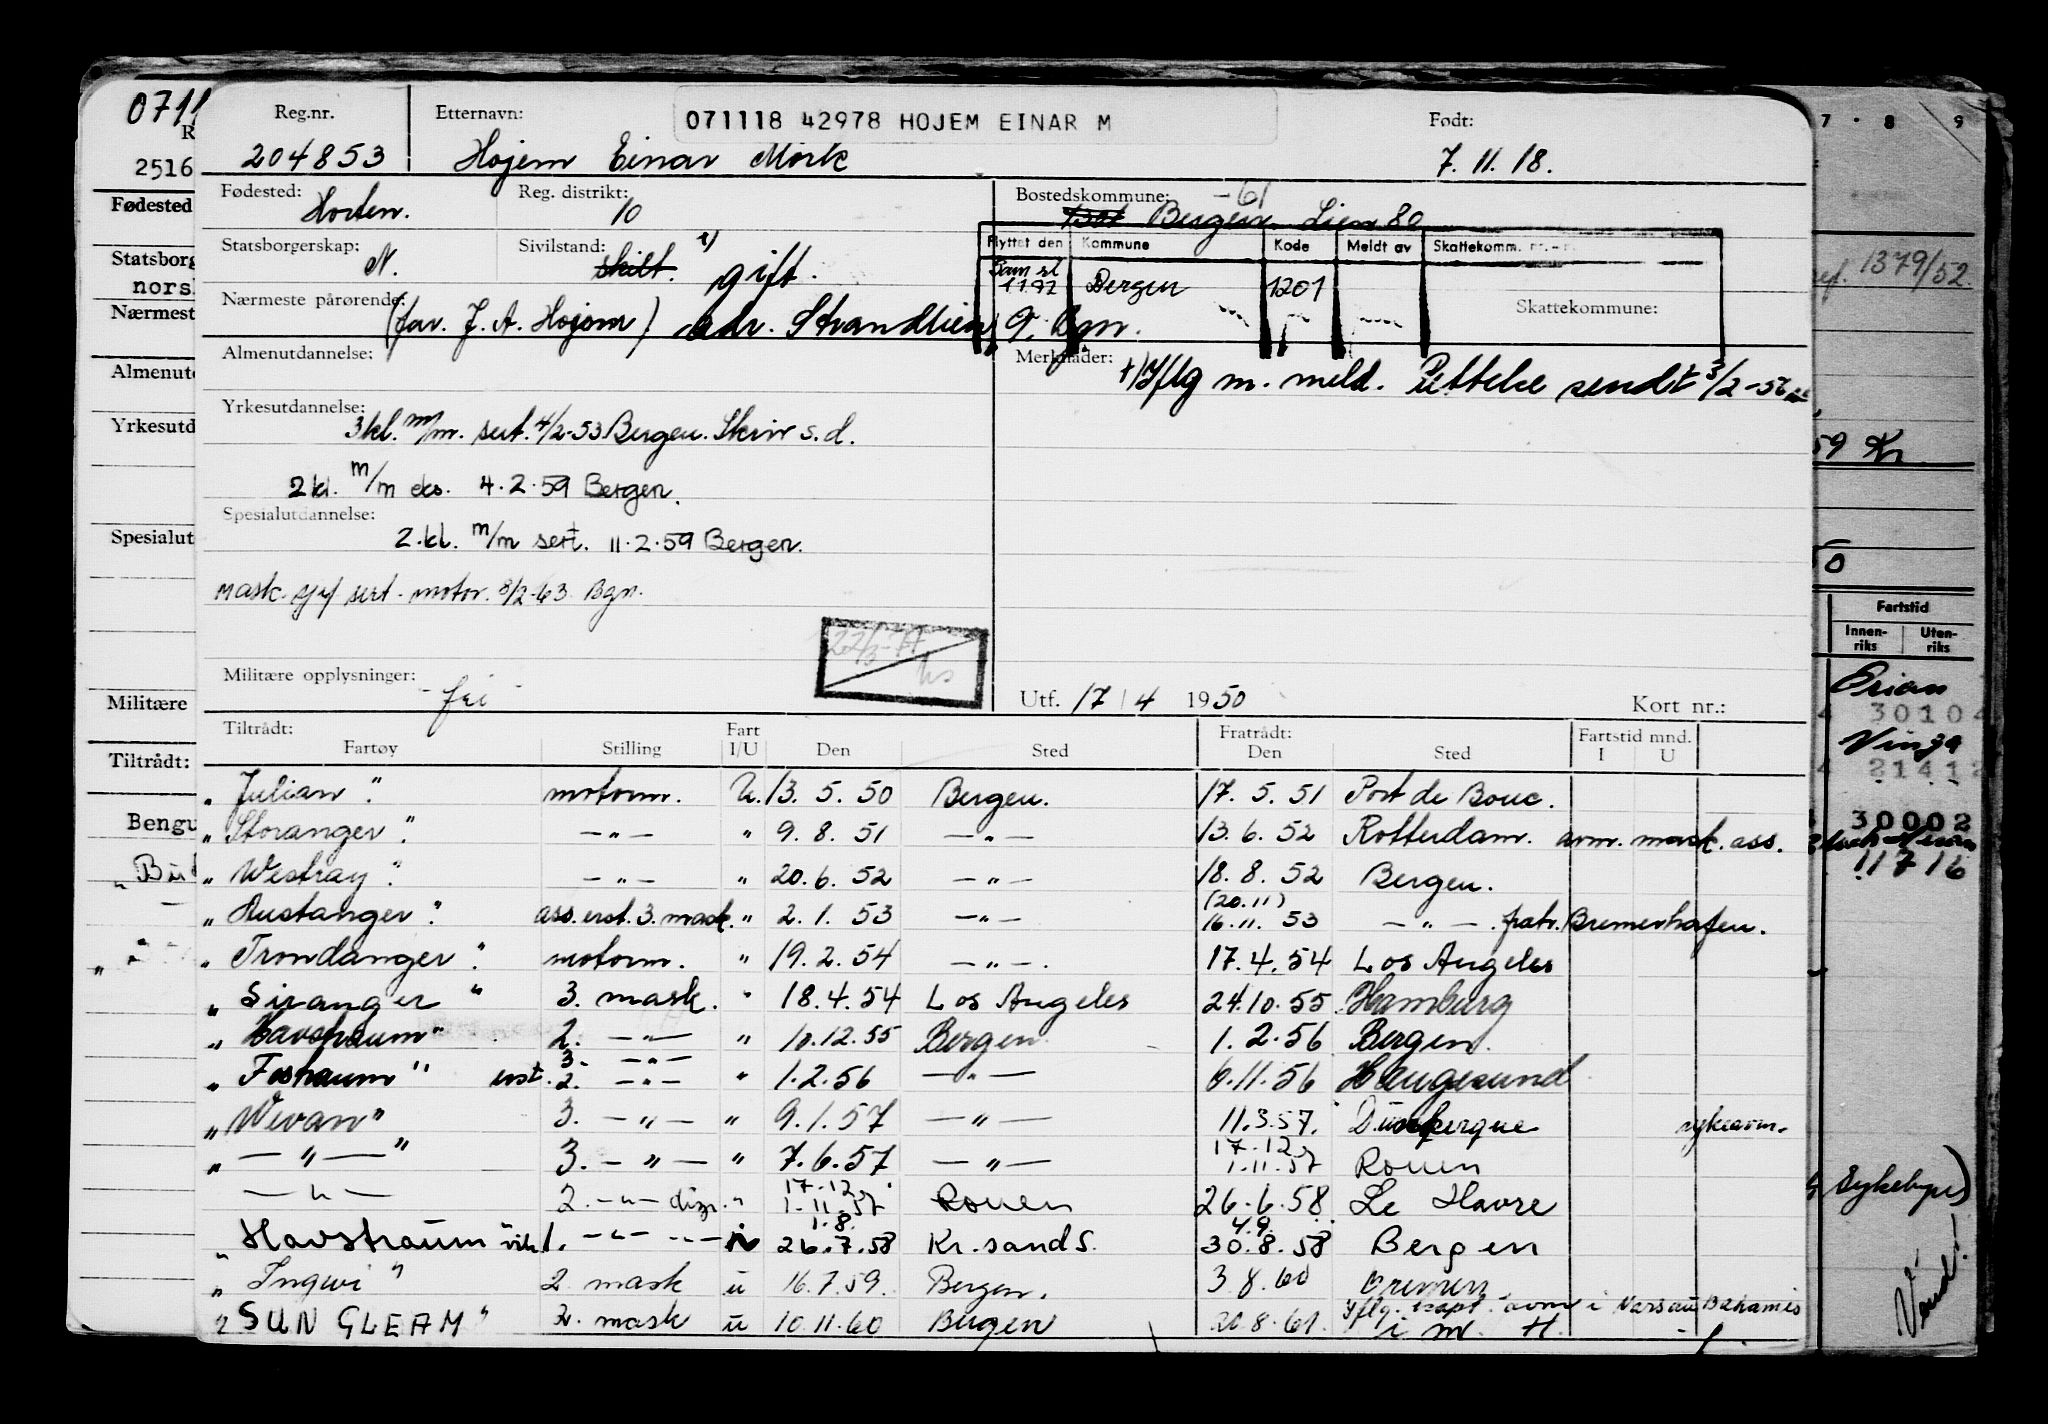 Reg.nr. Etternavn: 071118 42978 HOJEM EINAR M Født:
204853 Hojem Einar Mørk 7.11.18.
Fødested: Horten. Reg. distrikt: 10 Bostedskommune: -61 Bergen Lien 80
Statsborgerskap: N. Sivilstand: skilt. gift.
Flyttet den Kommune Kode Meldt av Skattekomm.
Bergen 1201
Skattekommune:
Nærmeste pårørende: (far. J. A. Hojem) adr. Strandlien 9. Bgn.
Almenutdannelse:
Merknader: +) Iflg m. meld. Rettelse sendt 3/2-56
Yrkesutdannelse:
3 kl. m/m. sert. 4/2-53 Bergen. Skriv s.d.
2 kl. m/m eks. 4.2.59 Bergen.
Spesialutdannelse:
2.kl. m/m sert. 11.2.59 Bergen.
mask. sert. motor. 8/2-63 Bgn.
22/3-77
Militære opplysninger: fri
Utf. 17/4 1950 Kort nr.:
Tiltrådt: Fartøy Stilling Fart I/U Den Sted Fratrådt: Den Sted Fartstid mnd. I U
"Julian". motorm. U. 13. 5. 50 Bergen. 17. 5. 51 Port de Bouc.
"Storanger". -"- " 9. 8. 51 -"- 13. 6. 52 Rotterdam. avm. mask. ass.
"Westray". -"- " 20. 6. 52 -"- 18. 8. 52 Bergen.
"Austanger". ass. erst. 3. mask. " 2. 1. 53 -"- (20.11) 16. 11. 53 -"- fratr. Bremerhafen.
"Trondanger". motorm. " 19. 2. 54 -"-. 17. 4. 54 Los Angeles
"Siranger" 3. mask. " 18. 4. 54 Los Angeles 24.10.55 Hamburg
"Havstraum" 2. -"- " 10.12.55 Bergen 1. 2. 56 Bergen.
"Fosstraum" erst. 3. 2. -"- -"- " 1. 2. 56 -"- 6.11.56 Haugesund
"Wevan" 3. -"- " 9. 1. 57 -"- 11.3.57. Dunkerque sykeavm.
"-"-" 3. -"- " 7.6.57 -"- 17.12. 1.11.57 Rouen
-"- 2. -"- disp. " 17.12. 1.11.57 Rouen 26.6.58 Le Havre
"Havstraum" vik. 1. -"- 1.8. 26.7.58 Kr.sand S. 4.9. 30.8.58 Bergen
"Ingwi" 2 mask u 16.7.59. Bergen. 3 8.60 Bremen
"SUN GLEAM" 2. mask u 10.11.60 Bergen 20.8.61. Iflg. kapt. avm i Nassau Bahamas
i m. H.
0711
2516
Fødested
Statsborg
norsk
Nærmest
Almenutd
Yrkesutd
Spesialut
Militære
Tiltrådt:
Bengu
7 8 9
ref. 1379/52.
59 Kr
50
Fartstid
Innen-riks Uten-riks
Orian
30104
Vinga
21412
30002
11716
Sykehjem)